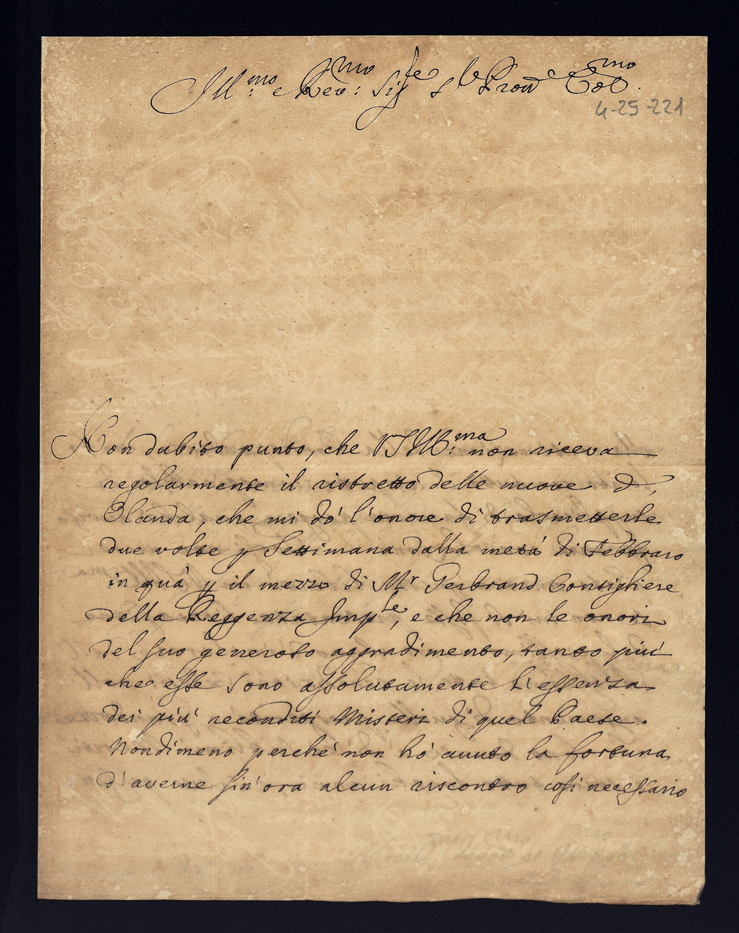 Ill:mo e Rev:mo Sigre Sre Prone Colmo
4-25-221
Non dubito punto, che VS Ill:ma non riceva
regolarmente il ristretto delle nuove d'
Olanda, che mi dò l'onore di trasmetterle
due volte p Settimana dalla metà di Febbraro
in quà p il mezzo di Mr Gerbrand Consigliere
della Reggenza Imple, e che non le onori
del suo generoso aggradimento, tanto più
che esse sono assolutamente l'essenza
dei più reconditi Misteri di quel Paese.
Nondimeno perche non hò avuto la fortuna
d'averne sin'ora alcun riscontro così necessario